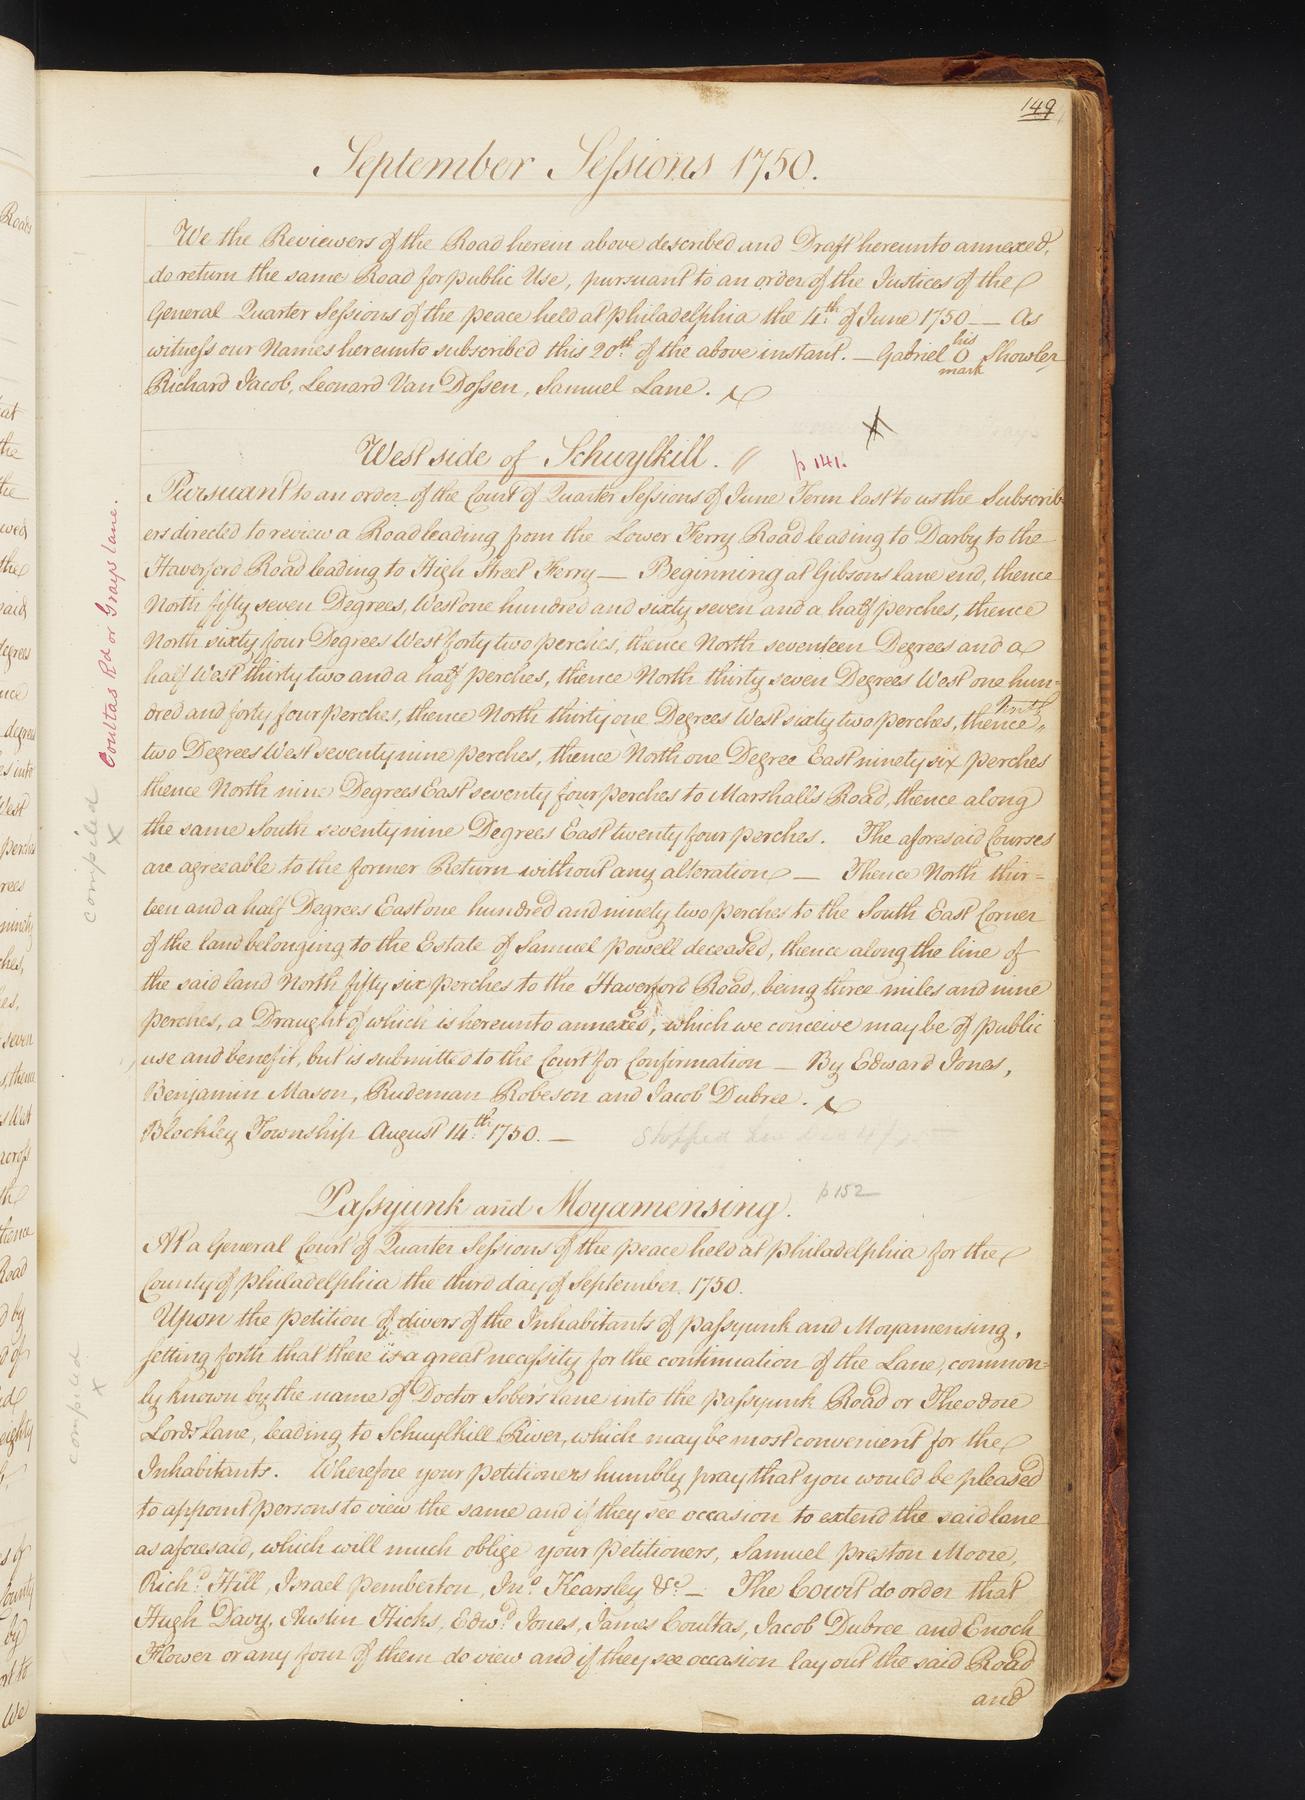 149
September Sessions 1750.
We the Reviewers of the Road herein above described and Draft hereunto annexed,
do return the same Road for public Use, pursuant to an order of the Justices of the
General Quarter Sessions of the peace held at Philadelphia the 4th of June 1750 — As
witness our Names hereunto subscribed this 20th of the above instant. — Gabriel his O mark Showler
Richard Jacob, Leonard Van Dossen, Samuel Lane.
West side of Schuylkill. // p 141.
Pursuant to an order of the Court of Quarter Sessions of June Term last to us the Subscrib
ers directed to review a Road leading from the Lower Ferry Road leading to Darby to the
Haverford Road leading to High Street Ferry — Beginning at Gibsons lane end, thence
North fifty seven Degrees, West one hundred and sixty seven and a half perches, thence
North sixty four Degrees West forty two perches, thence North seventeen Degrees and a
half West thirty two and a half perches, thence North thirty seven Degrees West one hun=
dred and forty four perches, thence North thirty one Degrees West sixty two perches, thence North
two Degrees West seventy nine perches, thence North one Degree East ninety six perches
thence North nine Degrees East seventy four perches to Marshalls Road, thence along
the same South seventy nine Degrees East twenty four perches. The aforesaid Courses
are agreeable to the former Return without any alteration — Thence North thir=
teen and a half Degrees East one hundred and ninety two perches to the South East Corner
of the land belonging to the Estate of Samuel Powell deceased, thence along the line of
the said land North fifty six perches to the Haverford Road, being three miles and nine
perches, a Draught of which is hereunto annexed, which we conceive may be of public
use and benefit, but is submitted to the Court for Confirmation — By Edward Jones,
Benjamin Mason, Rudeman Robeson and Jacob Dubree.
Blockley Township August 14th 1750. —
Coultas Rd or Grays Lane.
compiled
X
Passyunk and Moyamensing. p 152
At a General Court of Quarter Sessions of the peace held at Philadelphia for the
County of Philadelphia the third day of September 1750.
Upon the petition of divers of the Inhabitants of passyunk and Moyamensing,
setting forth that there is a great necessity for the continuation of the Lane, common=
ly known by the name of Doctor Sober's lane into the passyunk Road or Theodore
Lords lane, leading to Schuylkill River, which may be most convenient for the
Inhabitants. Wherefore your petitioners humbly pray that you would be pleased
to appoint persons to view the same and if they see occasion to extend the said lane
as aforesaid, which will much oblige your petitioners, Samuel preston Moore,
Richd Hill, Israel pemberton, Jno Kearsley &c — The Court do order that
Hugh Davy, Austin Hicks, Edwd Jones, James Coultas, Jacob Dubree and Enoch
Flower or any four of them do view and if they see occasion lay out the said Road
and
compiled
X